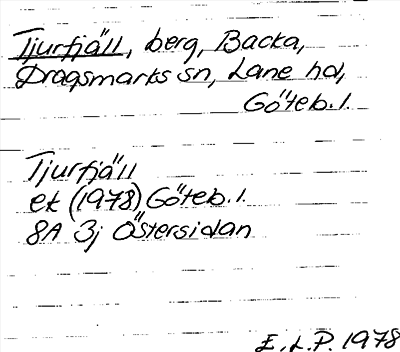 Tjurfjäll, berg, Backa,
Dragsmarks sn, Lane hd,
Göteb. l.
Tjurfjäll
ek (1978) Göteb. l.
8A 3j Östersidan
E. L. P. 1978